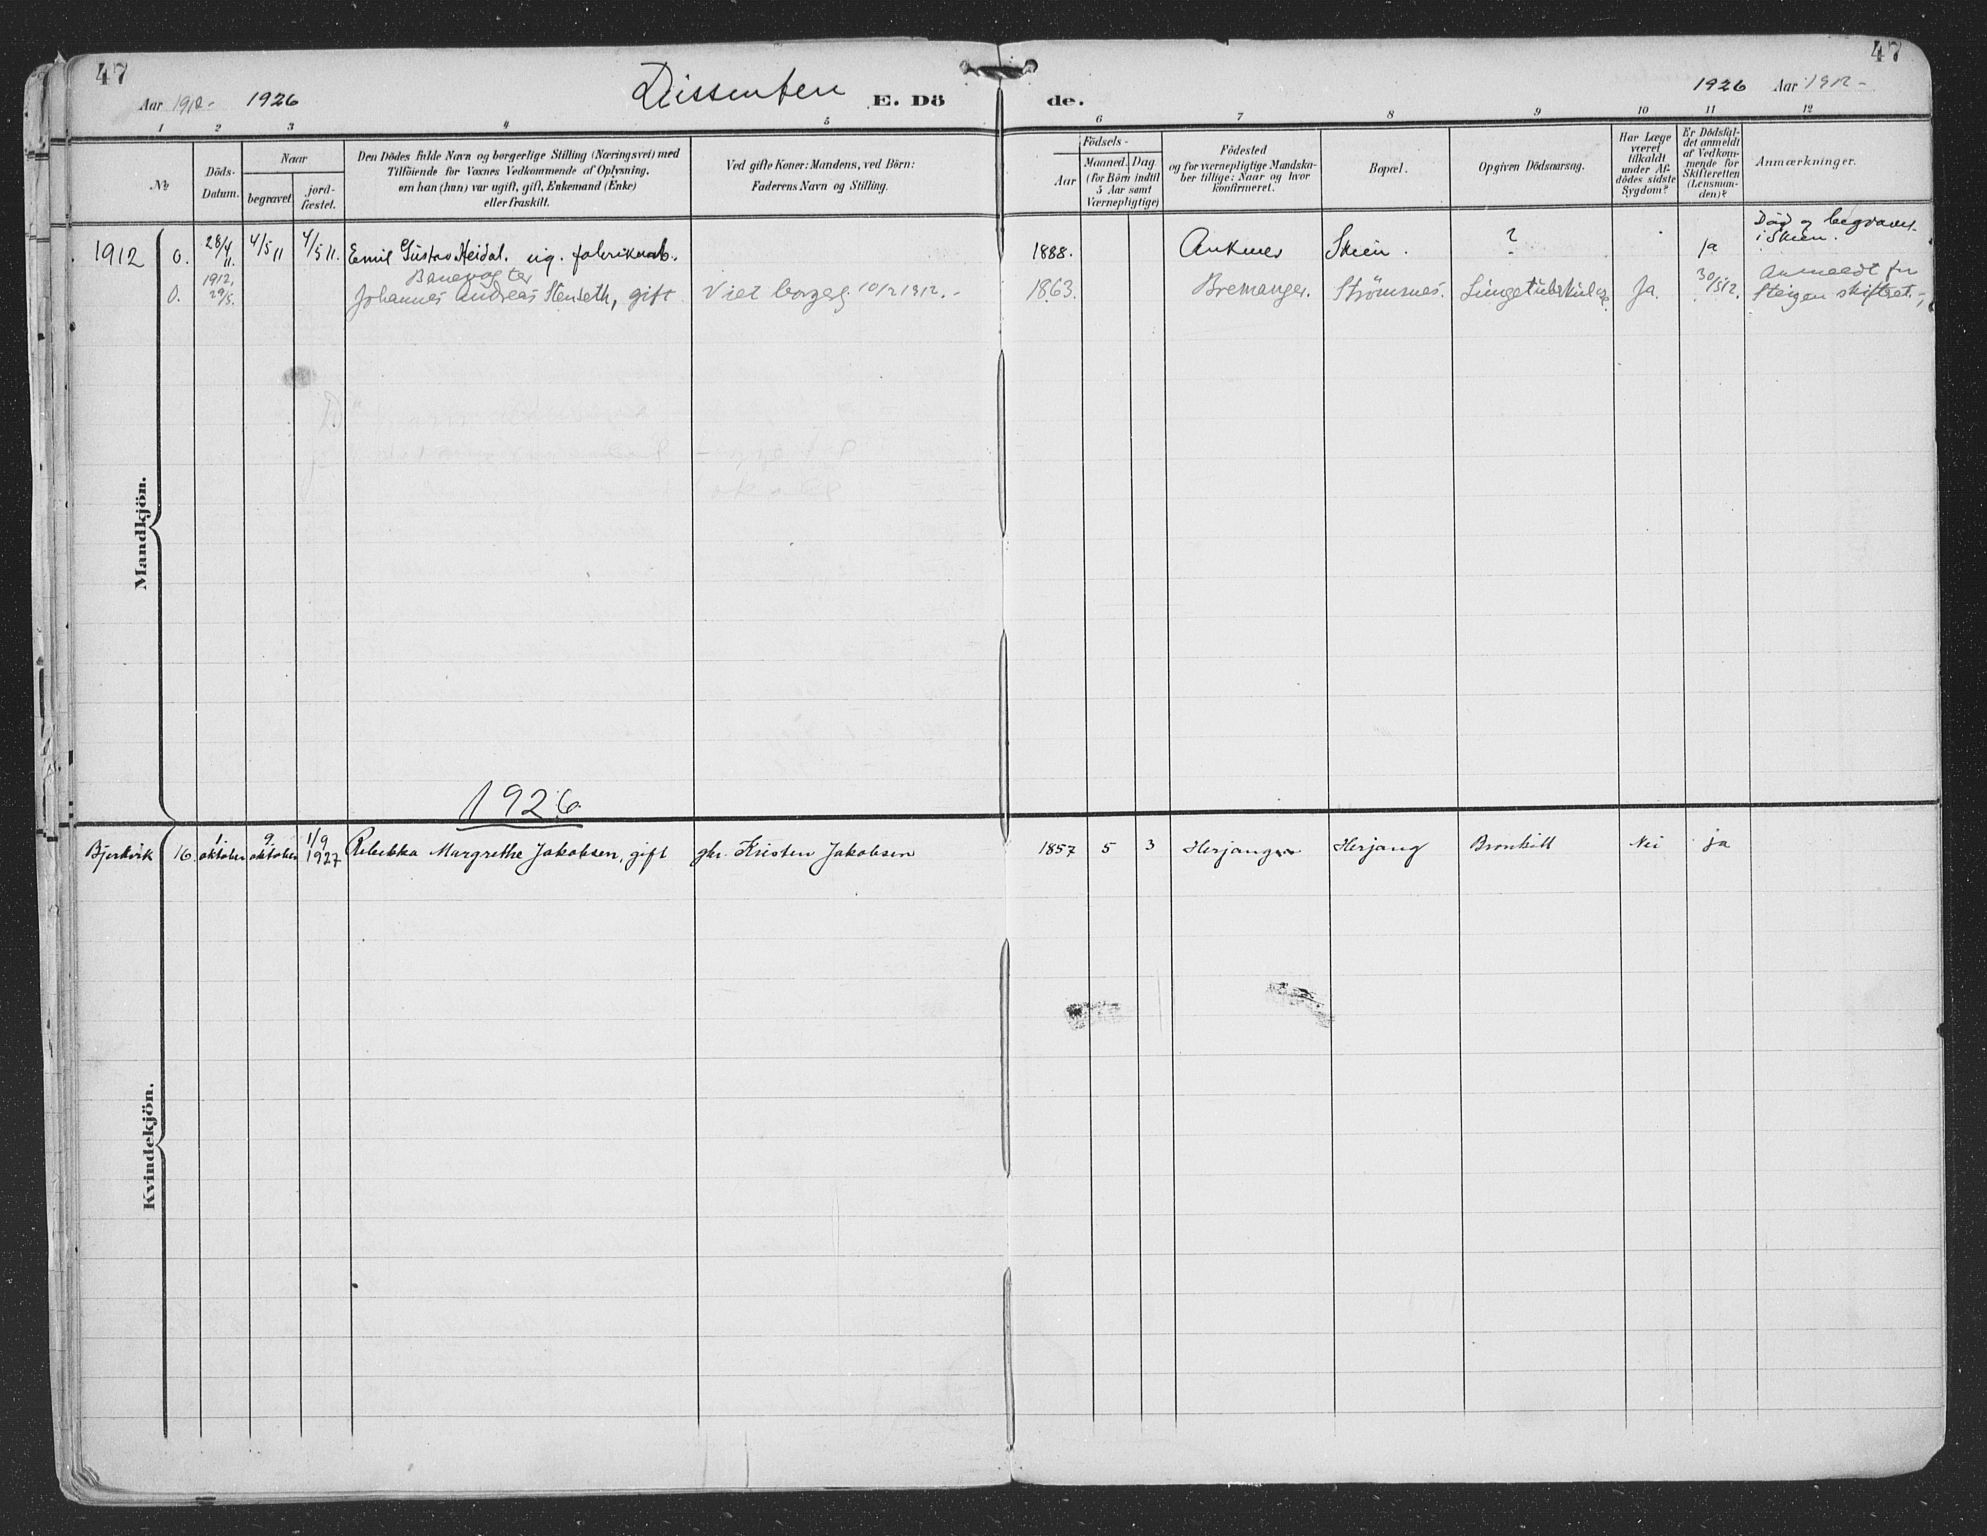 47 47
Aar 1912- 1926 Dissenter E. Dö de. 1926 Aar 1912-
1 2 3 4 5 6 7 8 9 10 11 12
No
Döds-
Datum.
Naar
begravet
jord-
fæstet.
Den Dödes fulde Navn og borgerlige Stilling (Næringsvei) med
Tilföiende for Voxnes Vedkommende af Oplysning,
om han (hun) var ugift, gift, Enkemand (Enke)
eller fraskilt.
Ved gifte Koner: Mandens, ved Börn:
Faderens Navn og Stilling.
Födsels-
Aar
Maaned. Dag.
(for Börn indtil
5 Aar samt
Værnepligtige)
Födested
og for værnepligtige Mandska-
ber tillige: Naar og hvor
konfirmeret.
Bopæl.
Opgiven Dödsaarsag.
Har Læge
været
tilkaldt
under Af-
dödes sidste
Sygdom?
Er Dödsfal-
det anmeldt
af Vedkom-
mende for
Skifteretten
(Lensman-
den)?
Anmærkninger.
Mandkjön.
1912 0. 28/4 11. 4/5 11 4/5 11. Emil Gustav Heidal. ug. fabrikarb. 1888. Ankenes Skien. ? ja Död og begravet
i Skien.
1912. Banevogter
0. 29/5. Johannes Andreas Stenseth, gift Viet borgerl. 10/2 1912.- 1863. Bremanger. Strømsnes. Lungetuberkulose Ja. 30/5 12. Anmeldt for
Steigen skifteret.-,
1926
Kvindekjön.
Bjerkvik 16 1. oktober 9. oktober 1/9 1927 Rebekka Margrethe Jakobsen, gift gbr. Kristen Jakobsen 1857 5 3 Herjangen Herjang Bronkitt Nei ja